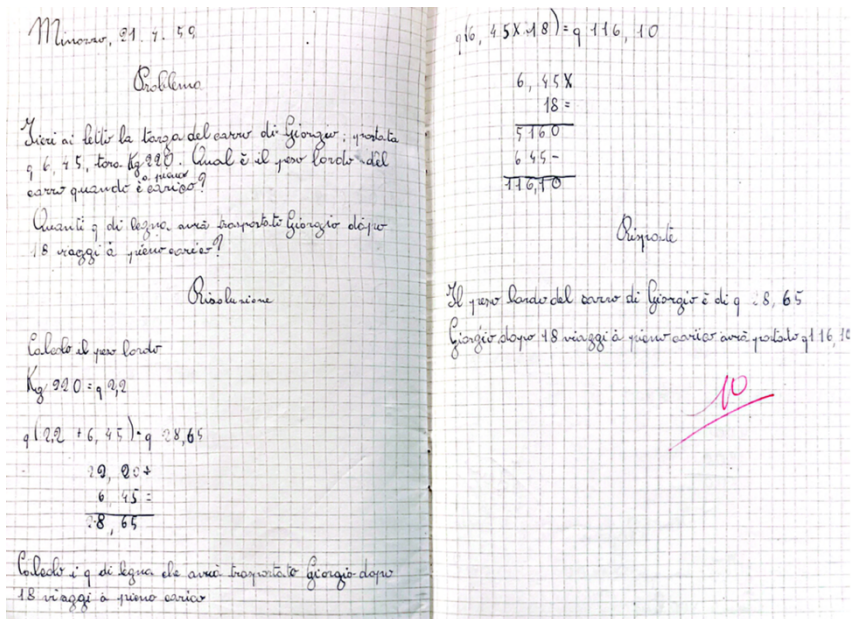 Minozzo, 21. 4. 59
Problema
Ieri ai letto la targa del carro di Giorgio; portata
q 6, 45, tara Kg 220. Qual è il peso lordo del
carro quando è a pieno carico?
Quanti q di legna avrà trasportato Giorgio dopo
18 viaggi à pieno carico?
Risoluzione
Calcolo il peso lordo
Kg 220 = q 2,2
q (2,2 + 6, 45) = q 8,65
2, 20+
6, 45 =
8, 65
Calcolo i q di legna che avrà trasportato Giorgio dopo
18 viaggi à pieno carico
q (6, 45 X 18) = q 116, 10
6, 45 X
18 =
5160
645-
116,10
Risposte
Il peso lordo del carro di Giorgio è di q 8, 65
Giorgio dopo 18 viaggi à pieno carico avrà portato q 116, 10
10